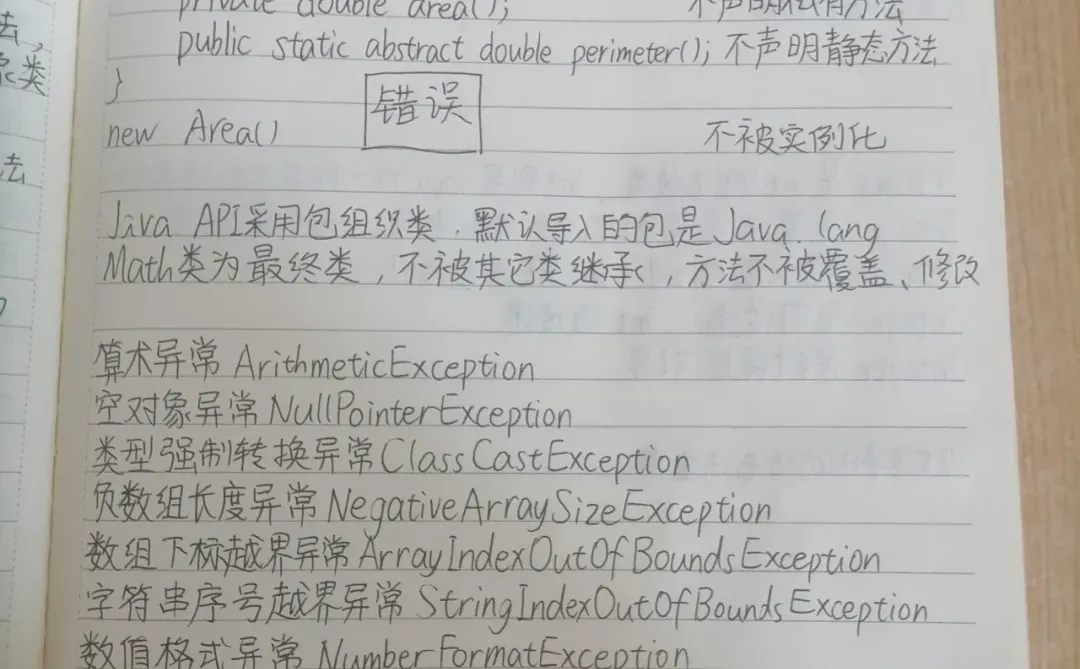 private double area(); 不声明私有方法
去,
public static abstract double perimeter(); 不声明静态方法
象类
}
错误
new Area() 不被实例化
去
Java API采用包组织类,默认导入的包是Java.lang
Math类为最终类,不被其它类继承,方法不被覆盖、修改
算术异常 ArithmeticException
空对象异常 NullPointerException
类型强制转换异常 ClassCastException
负数组长度异常 NegativeArraySizeException
数组下标越界异常 ArrayIndexOutOfBoundsException
字符串序号越界异常 StringIndexOutOfBoundsException
数值格式异常 NumberFormatException